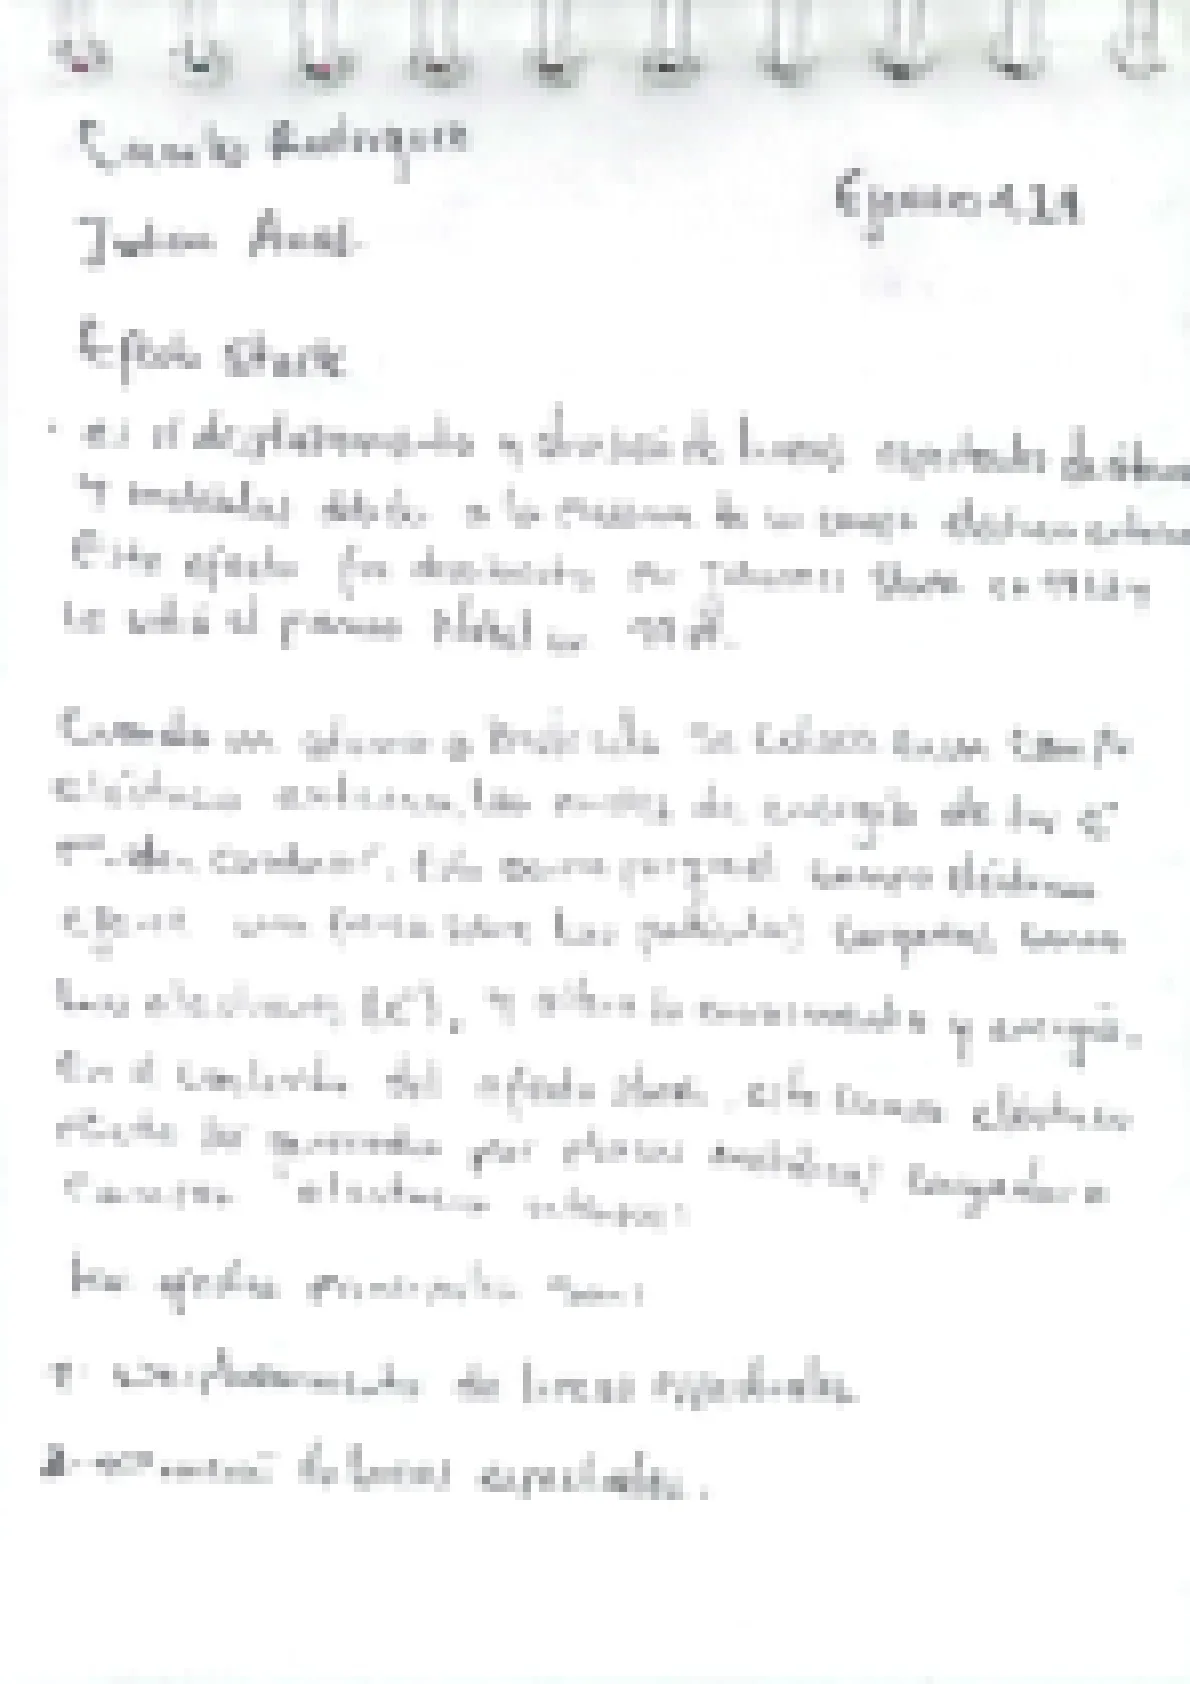 Camilo Rodriguez
Julian
Efecto Stark
es el desplazamiento y división de líneas espectrales de
y moléculas debido a la presencia de un campo eléctrico externo
Este efecto fue descubierto por Johannes Stark en 1913 y
le valió el premio Nobel en
Cuando un átomo o molécula se coloca en un campo
eléctrico externo, los niveles de energía de los e-
pueden cambiar. Esto ocurre porque el campo eléctrico
ejerce una fuerza sobre las partículas cargadas, como
los electrones (e-), y altera su movimiento y energía.
En el contexto del efecto Stark, este campo eléctrico
puede ser generado por placas metálicas cargadas o
campos eléctricos externos
los efectos principales son:
1- desplazamiento de líneas espectrales
2- de líneas espectrales.